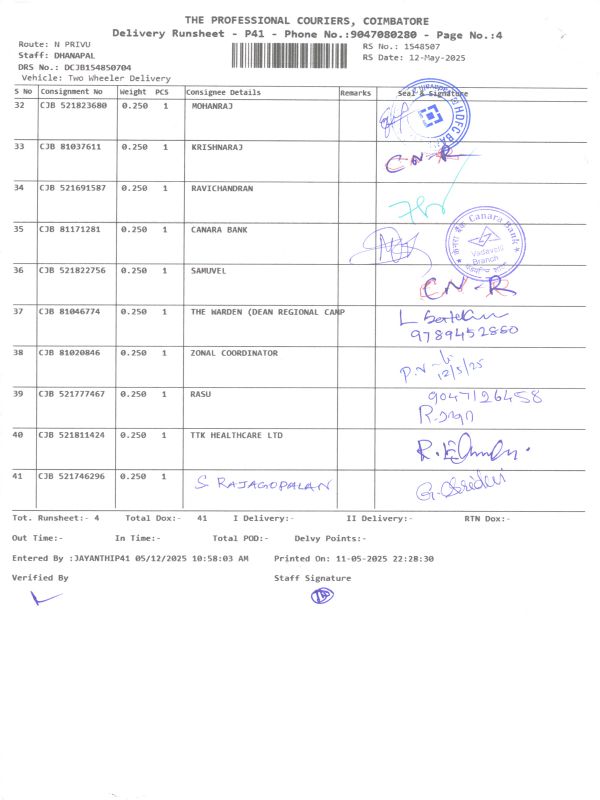 THE PROFESSIONAL COURIERS, COIMBATORE
Delivery Runsheet - P41 - Phone No.:9047080280 - Page No.:4
Route: N PRIVU
RS No.: 1548507
Staff: DHANAPAL
RS Date: 12-May-2025
DRS No.: DCJB154850704
Vehicle: Two Wheeler Delivery
S No Consignment No Weight PCS Consignee Details Remarks Seal & Signature
32 CJB 521823680 0.250 1 MOHANRAJ
HDFC BA
33 CJB 81037611 0.250 1 KRISHNARAJ CN-R
34 CJB 521691587 0.250 1 RAVICHANDRAN
35 CJB 81171281 0.250 1 CANARA BANK
Canara Bank
Vadavalli
Branch
36 CJB 521822756 0.250 1 SAMUVEL CN-R
37 CJB 81046774 0.250 1 THE WARDEN (DEAN REGIONAL CAMP
9789452860
38 CJB 81020846 0.250 1 ZONAL COORDINATOR
12/5/25
39 CJB 521777467 0.250 1 RASU 9047126458
40 CJB 521811424 0.250 1 TTK HEALTHCARE LTD
41 CJB 521746296 0.250 1 S RAJAGOPALAN
Tot. Runsheet:- 4 Total Dox:- 41 I Delivery:- II Delivery:- RTN Dox:-
Out Time:- In Time:- Total POD:- Delvy Points:-
Entered By :JAYANTHIP41 05/12/2025 10:58:03 AM Printed On: 11-05-2025 22:28:30
Verified By Staff Signature